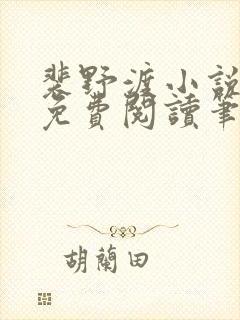 裴野渡小說
免費閱讀筆
胡蘭田